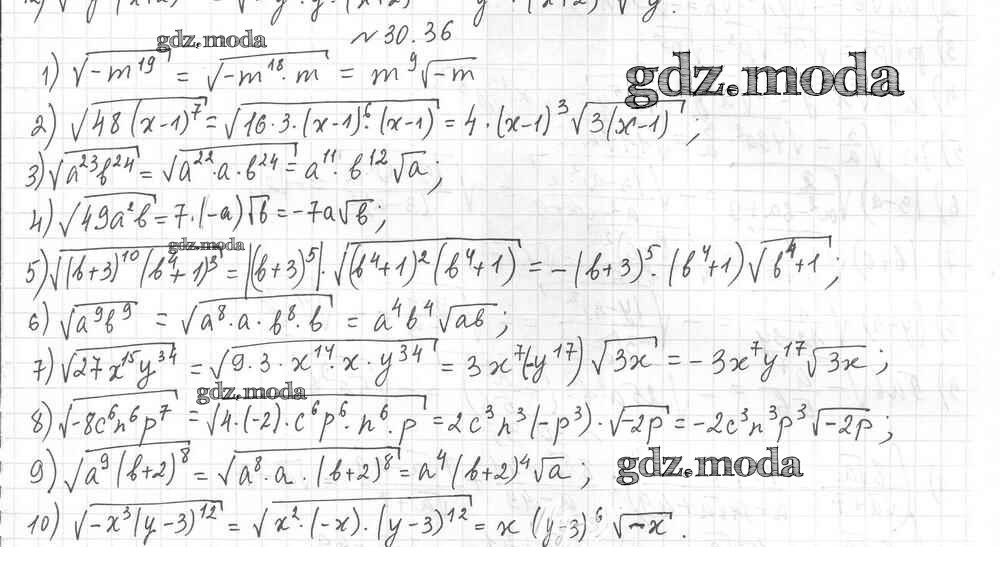 №30.36
gdz.moda
gdz.moda
1) √(-m¹⁹) = √(-m¹⁸·m) = m⁹√(-m)
2) √(48(x-1)⁷) = √(16·3·(x-1)⁶·(x-1)) = 4·(x-1)³√(3(x-1)) ;
3) √(a²³b²⁴) = √(a²²·a·b²⁴) = a¹¹·b¹²√a ;
4) √(49a²b) = 7·(-a)√b = -7a√b ;
gdz.moda
5) √((b+3)¹⁰(b⁴+1)³) = |(b+3)⁵|·√((b⁴+1)²(b⁴+1)) = -(b+3)⁵·(b⁴+1)√(b⁴+1) ;
6) √(a⁹b⁹) = √(a⁸·a·b⁸·b) = a⁴b⁴√(ab) ;
7) √(27x¹⁵y³⁴) = √(9·3·x¹⁴·x·y³⁴) = 3x⁷(-y¹⁷)√(3x) = -3x⁷y¹⁷√(3x) ;
gdz.moda
8) √(-8c⁶n⁶p⁷) = √(4·(-2)·c⁶p⁶·n⁶·p) = 2c³n³(-p³)·√(-2p) = -2c³n³p³√(-2p) ;
9) √(a⁹(b+2)⁸) = √(a⁸·a·(b+2)⁸) = a⁴(b+2)⁴√a ;
gdz.moda
10) √(-x³(y-3)¹²) = √(x²·(-x)·(y-3)¹²) = x(y-3)⁶√(-x) .